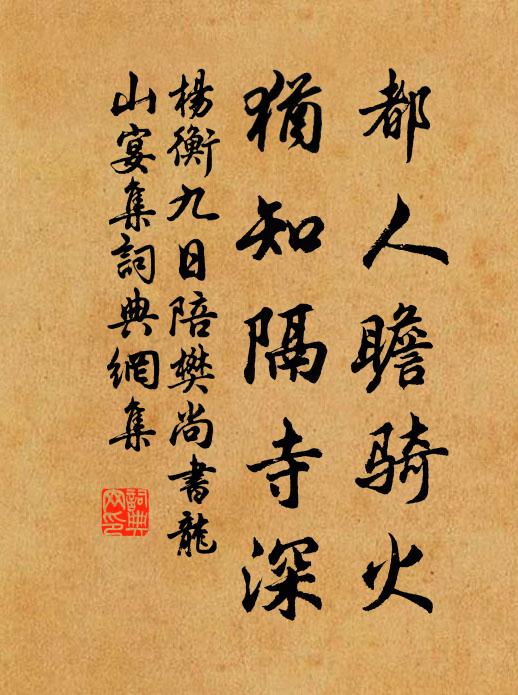 都人瞻骑火
猶知隔寺深
楊衡九日陪樊尚書龍
山宴集詞典網集
詞典網印